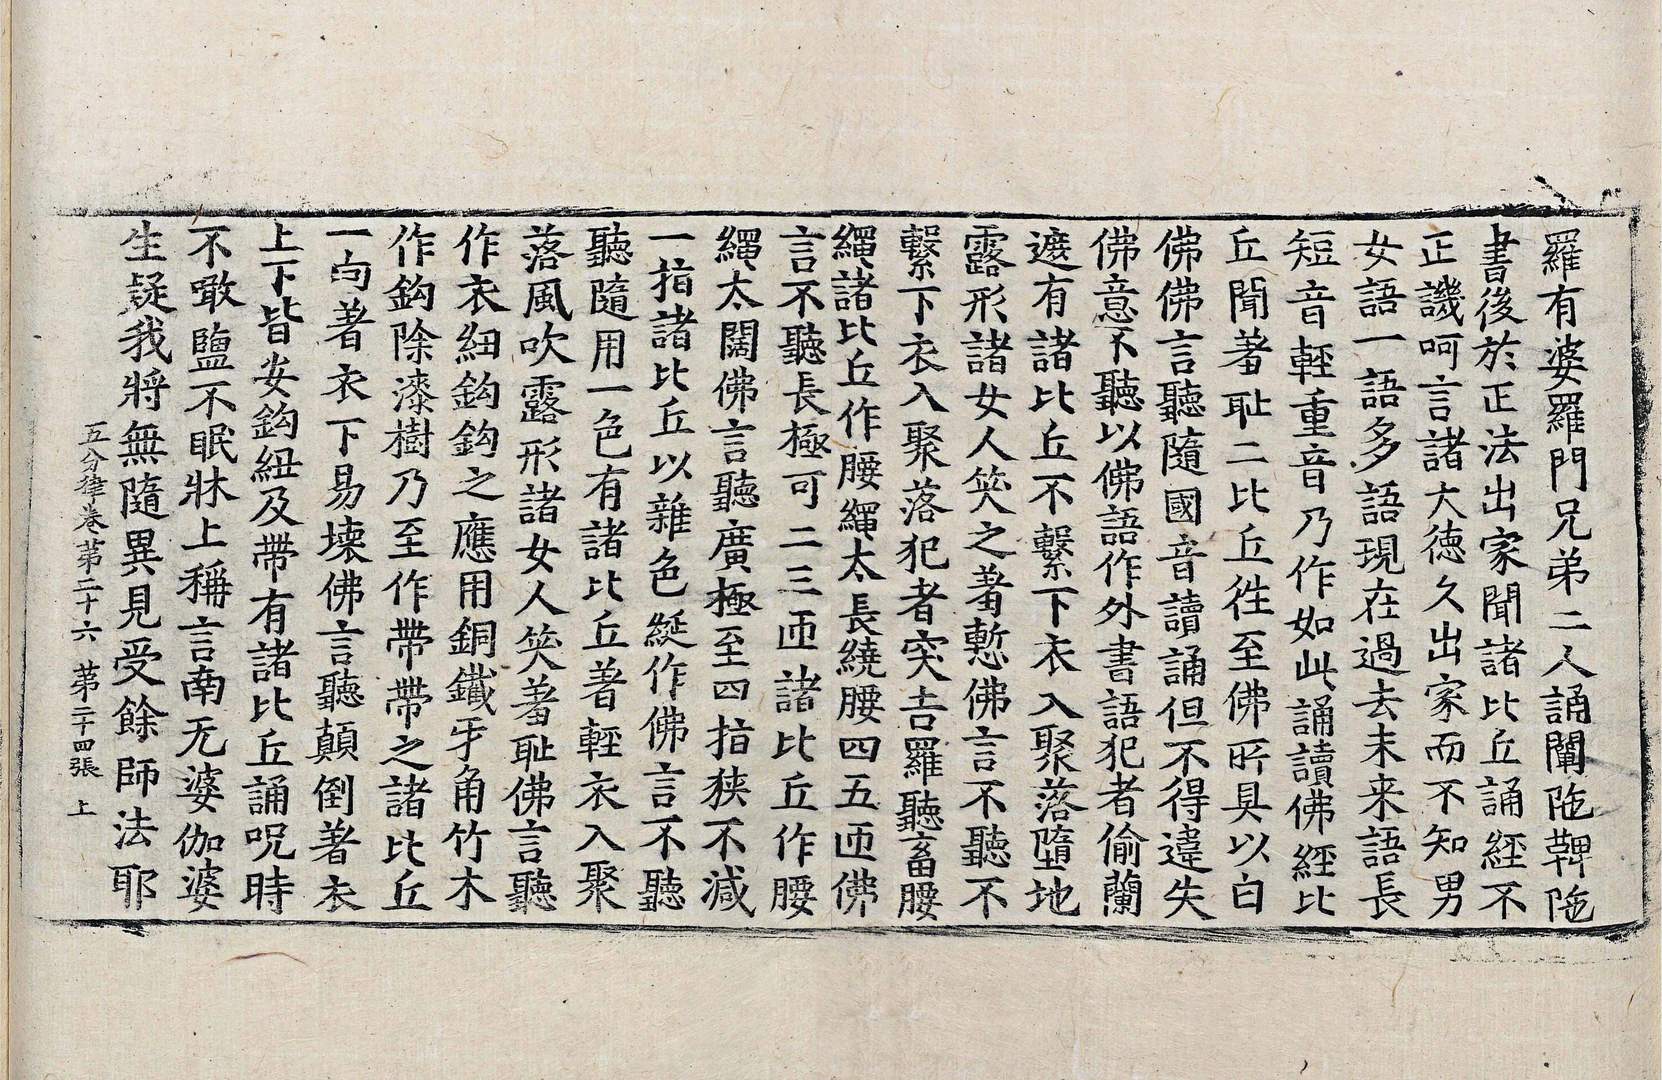 羅有婆羅門兄弟二人誦闡陁鞞陁
書後於正法出家聞諸比丘誦經不
正譏呵言諸大德久出家而不知男
女語一語多語現在過去未来語長
短音輕重音乃作如此誦讀佛經比
丘聞羞耻二比丘徃至佛所具以白
佛佛言聽隨國音讀誦但不得違失
佛意不聽以佛語作外書語犯者偷蘭
遮有諸比丘不繫下衣入聚落墮地
露形諸女人笑之羞慙佛言不聽不
繫下衣入聚落犯者突吉羅聽畜腰
繩諸比丘作腰繩太長繞腰四五匝佛
言不聽長極可二三匝諸比丘作腰
繩太闊佛言聽廣極至四指狹不減
一指諸比丘以雜色綖作佛言不聽
聽隨用一色有諸比丘著輕衣入聚
落風吹露形諸女人笑羞耻佛言聽
作衣紐鈎鈎之應用銅鐵牙角竹木
作鈎除漆樹乃至作帶帶之諸比丘
一向著衣下易壞佛言聽顛倒著衣
上下皆安鈎紐及帶有諸比丘誦呪時
不噉鹽不眠牀上稱言南无婆伽婆
生疑我將無隨異見受餘師法耶
五分律卷第二十六 第二十四張 上